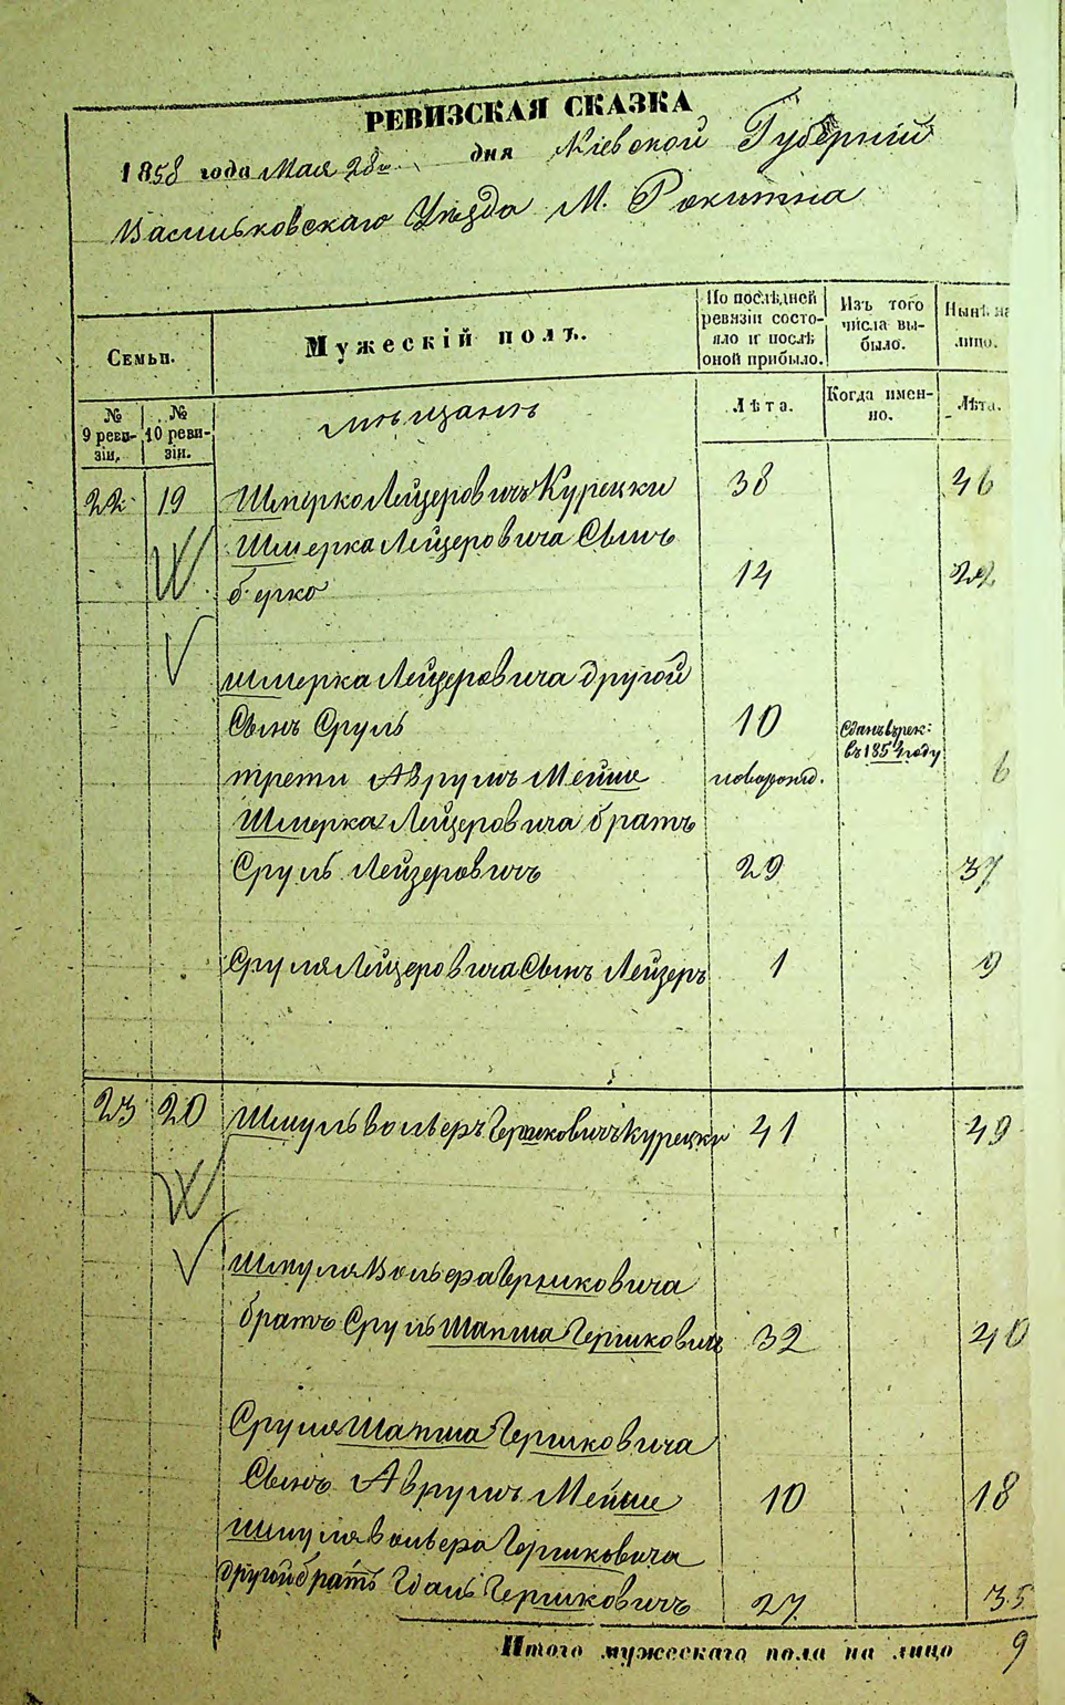 РЕВИЗСКАЯ СКАЗКА
1858 года Мая 28го дня Кіевской Губерніи
Васильковскаго Уезда М. Рокитна
Семьи.
Мужескій полъ.
По послѣдней ревизіи состояло и послѣ оной прибыло.
Изъ того числа выбыло.
Нынѣ на лицо.
№ 9 ревизіи.
№ 10 ревизіи.
мѣщанѣ
Лѣта.
Когда именно.
Лѣта.
22 19 Шмерко Лейзеровичъ Курецки 38 46
Шмерка Лейзеровича Сынъ
берко 14 22
шмерка Лейзеровича другой
Сынъ Сруль 10 Сданъ в рек: въ 1854 году
трети Аврумъ Мейше новорожд. 6
Шмерка Лейзеровича братъ
Сруль Лейзеровичъ 29 37
Сруля Лейзеровича Сынъ Лейзеръ 1 9
23 20 Шмуль вольферъ Гершковичъ Курецки 41 49
Шмуля Вольфера Гершковича
братъ Сруль Шапша Гершковичъ 32 40
Сруля Шапша Гершковича
Сынъ Аврумъ Мейше 10 18
шмуля вольфера Гершковича
другой братъ Гдаль Гершковичъ 27 35
Итого мужескаго пола на лицо 9